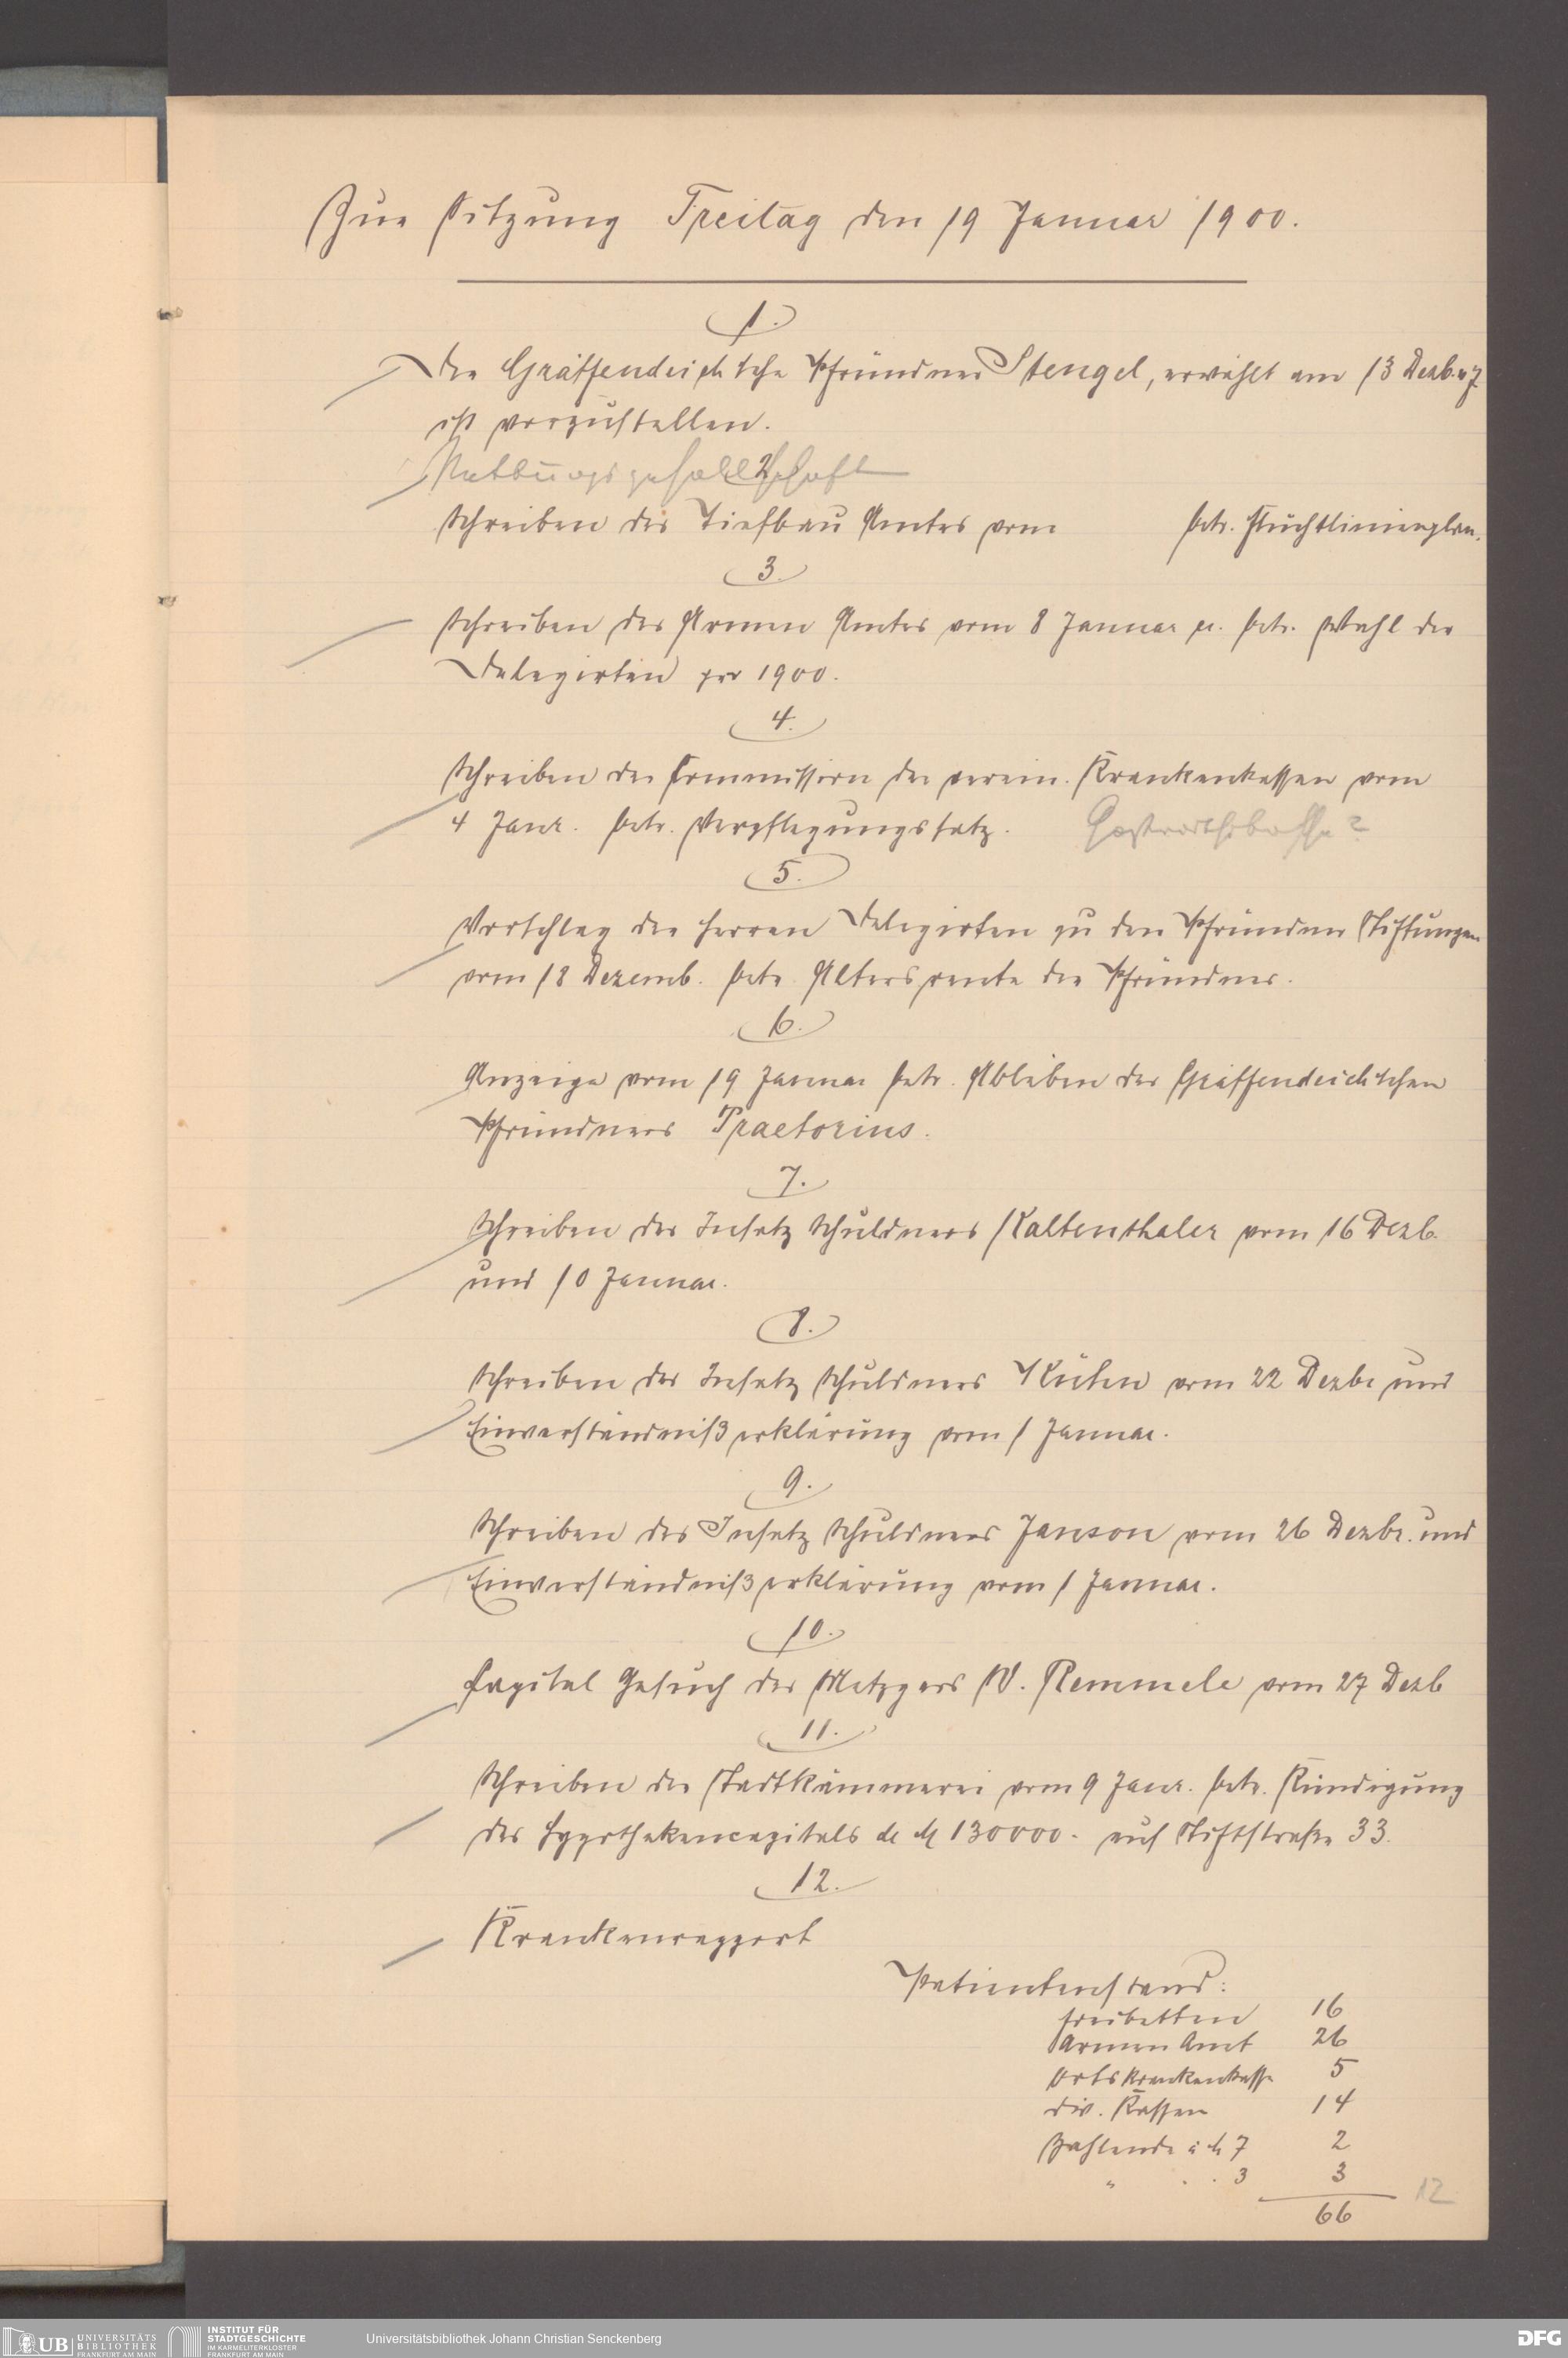 Zur Sitzung Freitag den 19 Januar 1900.
1.
Der Gräffendeich'sche Pfründner Stengel, erwählt am 13 Dezb.
ist vorzustellen.
Rettungsgesellschaft
2
Schreiben des Tiefbau Amtes vom betr. Fluchtlinienplan.
3.
Schreiben des Armen Amtes vom 8 Januar betr. Wahl der
Delegirten pro 1900.
4.
Schreiben der Commission der verein. Krankenkassen vom
4 Janr. betr. Verpflegungssatz.
5.
Vorschlag der Herren Delegirten zu den Pfründner Stiftungen
vom 18 Dezemb. betr. Altersrente der Pfründner.
6.
Anzeige vom 19 Januar betr. Ableben des Gräffendeich'schen
Pfründners Praetorius.
7.
Schreiben des Insatz Schuldners Kaltenthaler vom 16 Dezb.
und 10 Januar.
8.
Schreiben des Insatz Schuldners Kühn vom 22 Dezbr und
Einverständnißerklärung vom 1 Januar.
9.
Schreiben des Insatz Schuldners Janson vom 26 Dezbr. und
Einverständnißerklärung vom 1 Januar.
10.
Capital Gesuch des Metzgers W. Remmele vom 27 Dezb
11.
Schreiben der Stadtkämmerei vom 9 Janr. betr. Kündigung
des Hypothekencapitals de M 130000.- auf Stiftstraße 33.
12.
Krankenrapport
Patientenstand:
Freibetten 16
Armen Amt 26
Ortskrankenkasse 5
div. Kassen 14
Zahlende à M 7 2
" . . 3 3
66
12
UB UNIVERSITÄTS
BIBLIOTHEK
FRANKFURT AM MAIN
INSTITUT FÜR
STADTGESCHICHTE
IM KARMELITERKLOSTER
FRANKFURT AM MAIN
Universitätsbibliothek Johann Christian Senckenberg
DFG